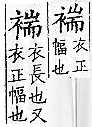 褍
衣正
幅也
褍
衣長也又
衣正幅也